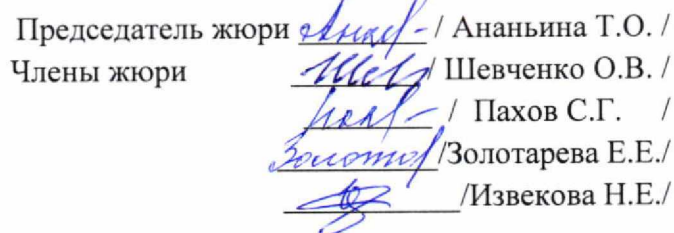 Председатель жюри / Ананьина Т.О. /
Члены жюри / Шевченко О.В. /
/ Пахов С.Г. /
/Золотарева Е.Е./
/Извекова Н.Е./